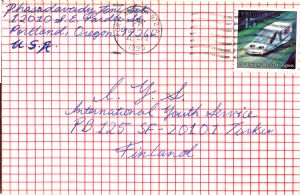 12010 S.E. Pardee St.
Portland, Oregon 97266
U.S.A.
1990
45
I.Y.S.
International Youth Service
PB 125 SF-20101 Turku
Finland